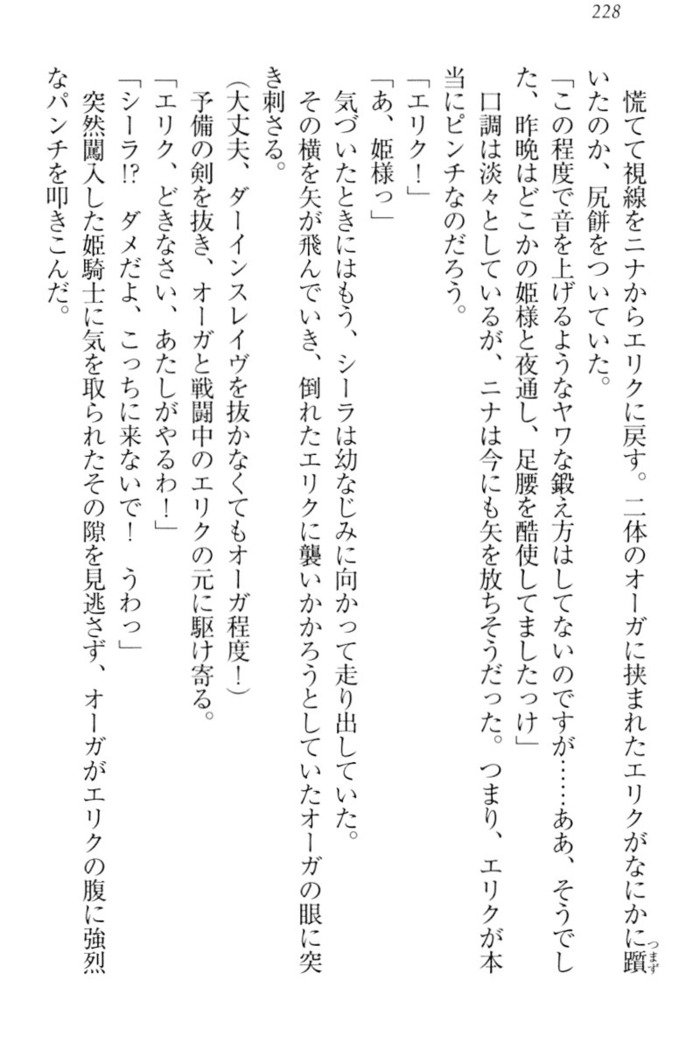 228
慌てて視線をニナからエリクに戻す。二体のオーガに挟まれたエリクがなにかに躓
つまず
いたのか、尻餅をついていた。
「この程度で音を上げるようなヤワな鍛え方はしてないのですが……ああ、そうでし
た、昨晩はどこかの姫様と夜通し、足腰を酷使してましたっけ」
口調は淡々としているが、ニナは今にも矢を放ちそうだった。つまり、エリクが本
当にピンチなのだろう。
「エリク！」
「あ、姫様っ」
気づいたときにはもう、シーラは幼なじみに向かって走り出していた。
その横を矢が飛んでいき、倒れたエリクに襲いかかろうとしていたオーガの眼に突
き刺さる。
（大丈夫、ダーインスレイヴを抜かなくてもオーガ程度！）
予備の剣を抜き、オーガと戦闘中のエリクの元に駆け寄る。
「エリク、どきなさい、あたしがやるわ！」
「シーラ!?　ダメだよ、こっちに来ないで！　うわっ」
突然闖入した姫騎士に気を取られたその隙を見逃さず、オーガがエリクの腹に強烈
なパンチを叩きこんだ。